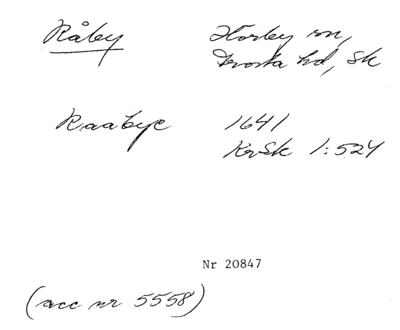 Råby Horley sn,
Frosta hd, Sk
Raabye 1641
KrSk 1:524
Nr 20847
(acc nr 5558)